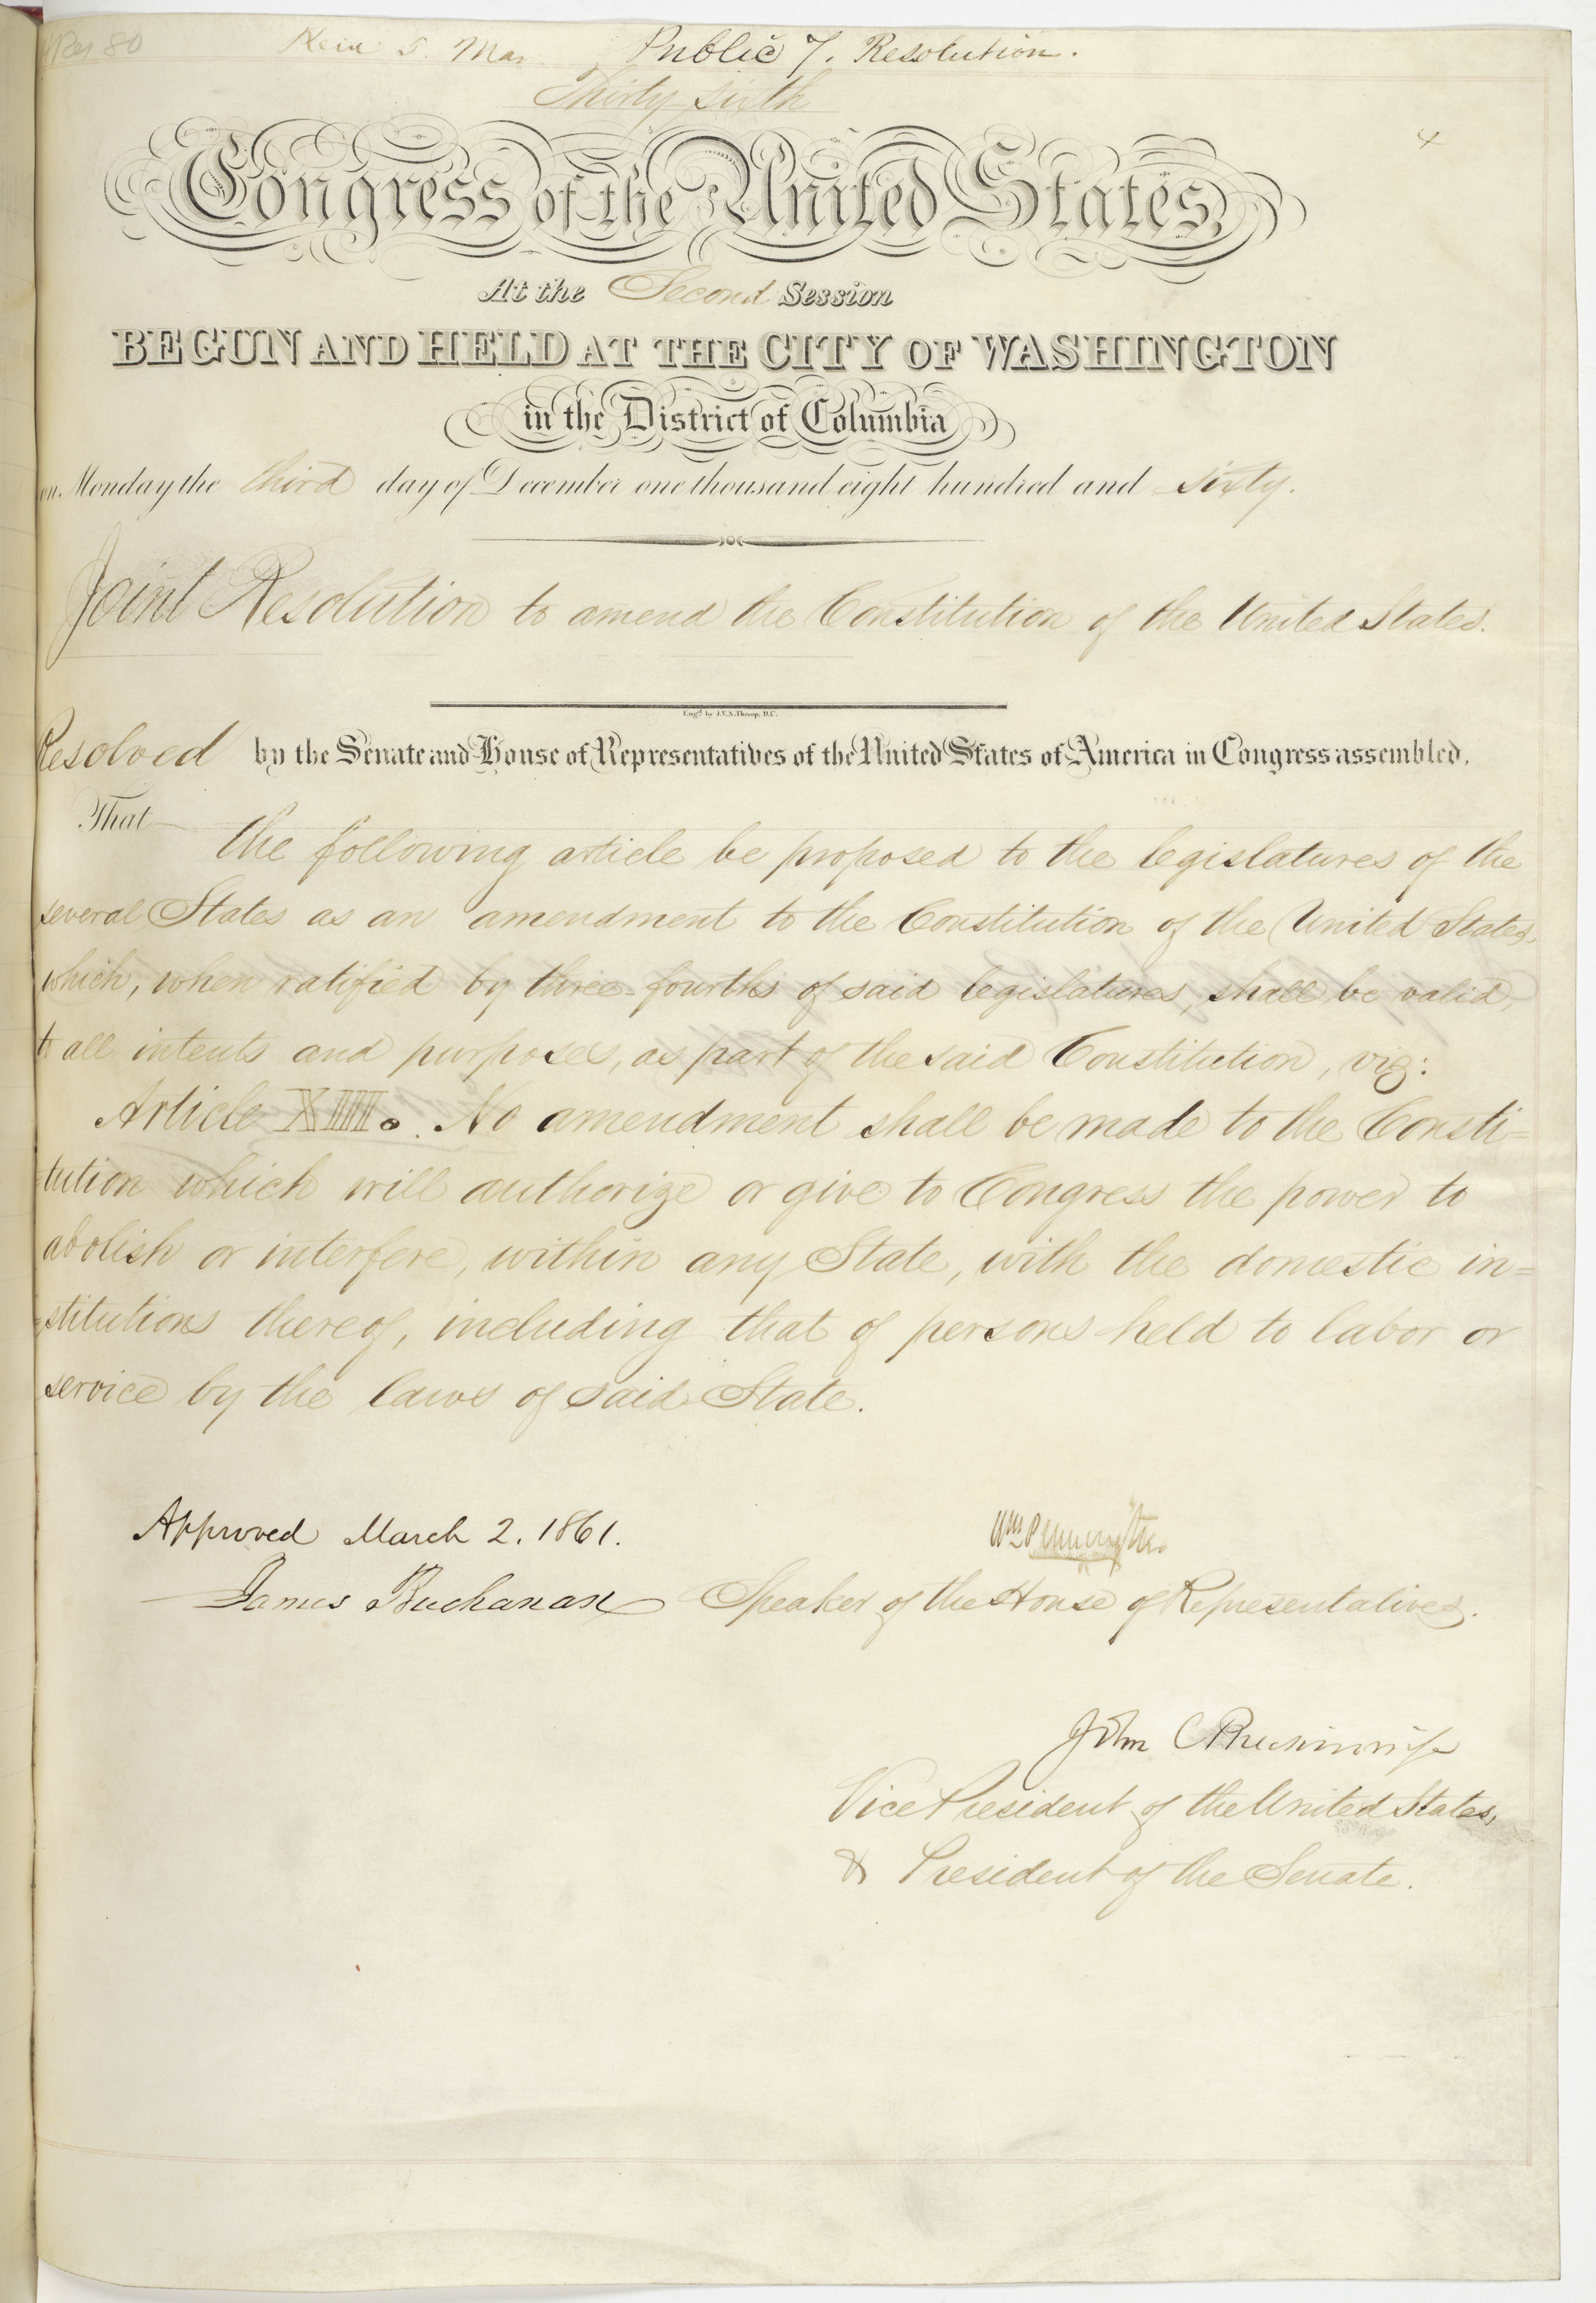 HRes 80
Public 7. Resolution.
Thirty sixth
4
Congress of the United States,
At the Second Session
BEGUN AND HELD AT THE CITY OF WASHINGTON
in the District of Columbia
on Monday the third day of December one thousand eight hundred and sixty.
Joint Resolution to amend the Constitution of the United States.
Engd. by J.V.N. Throop, D.C.
Resolved by the Senate and House of Representatives of the United States of America in Congress assembled,
That
the following article be proposed to the legislatures of the
several States as an amendment to the Constitution of the United States,
which, when ratified by three-fourths of said legislatures, shall be valid,
to all intents and purposes, as part of the said Constitution, viz:
Article XIII. No amendment shall be made to the Consti=
tution which will authorize or give to Congress the power to
abolish or interfere, within any State, with the domestic in=
stitutions thereof, including that of persons held to labor or
service by the laws of said State.
Approved March 2. 1861.
Wm Pennington
James Buchanan
Speaker of the House of Representatives.
John C Breckinridge
Vice President of the United States,
& President of the Senate.